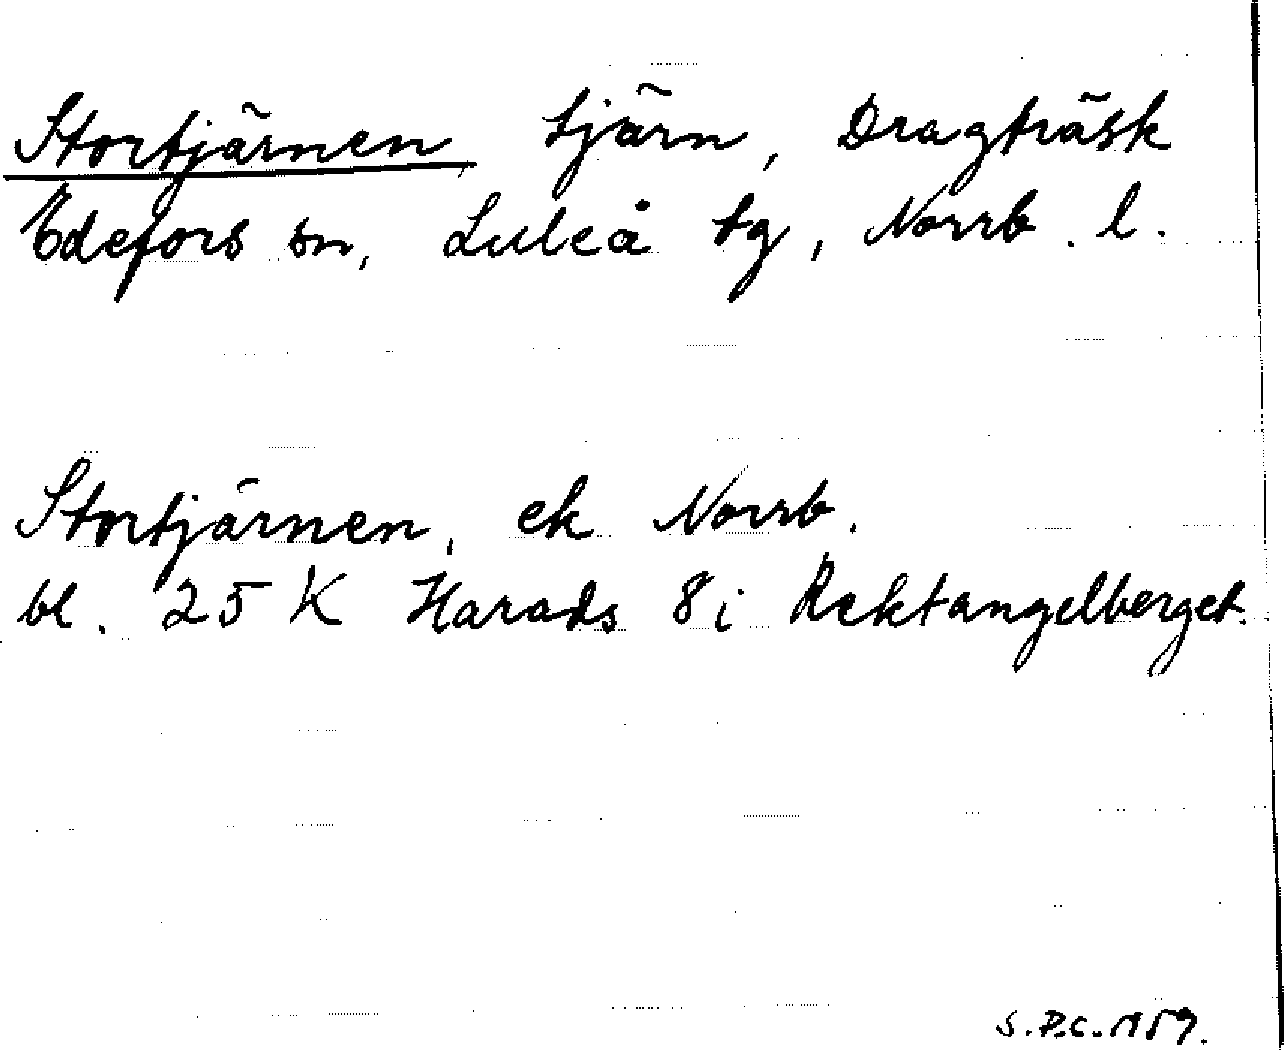 Stortjärnen tjärn, Dragträsk
Edefors sn, Luleå tg, Norrb. l.
Stortjärnen, ek Norrb.
bl. 25 K Harads 8 i Rektangelberget.
S.P.C. 1959.